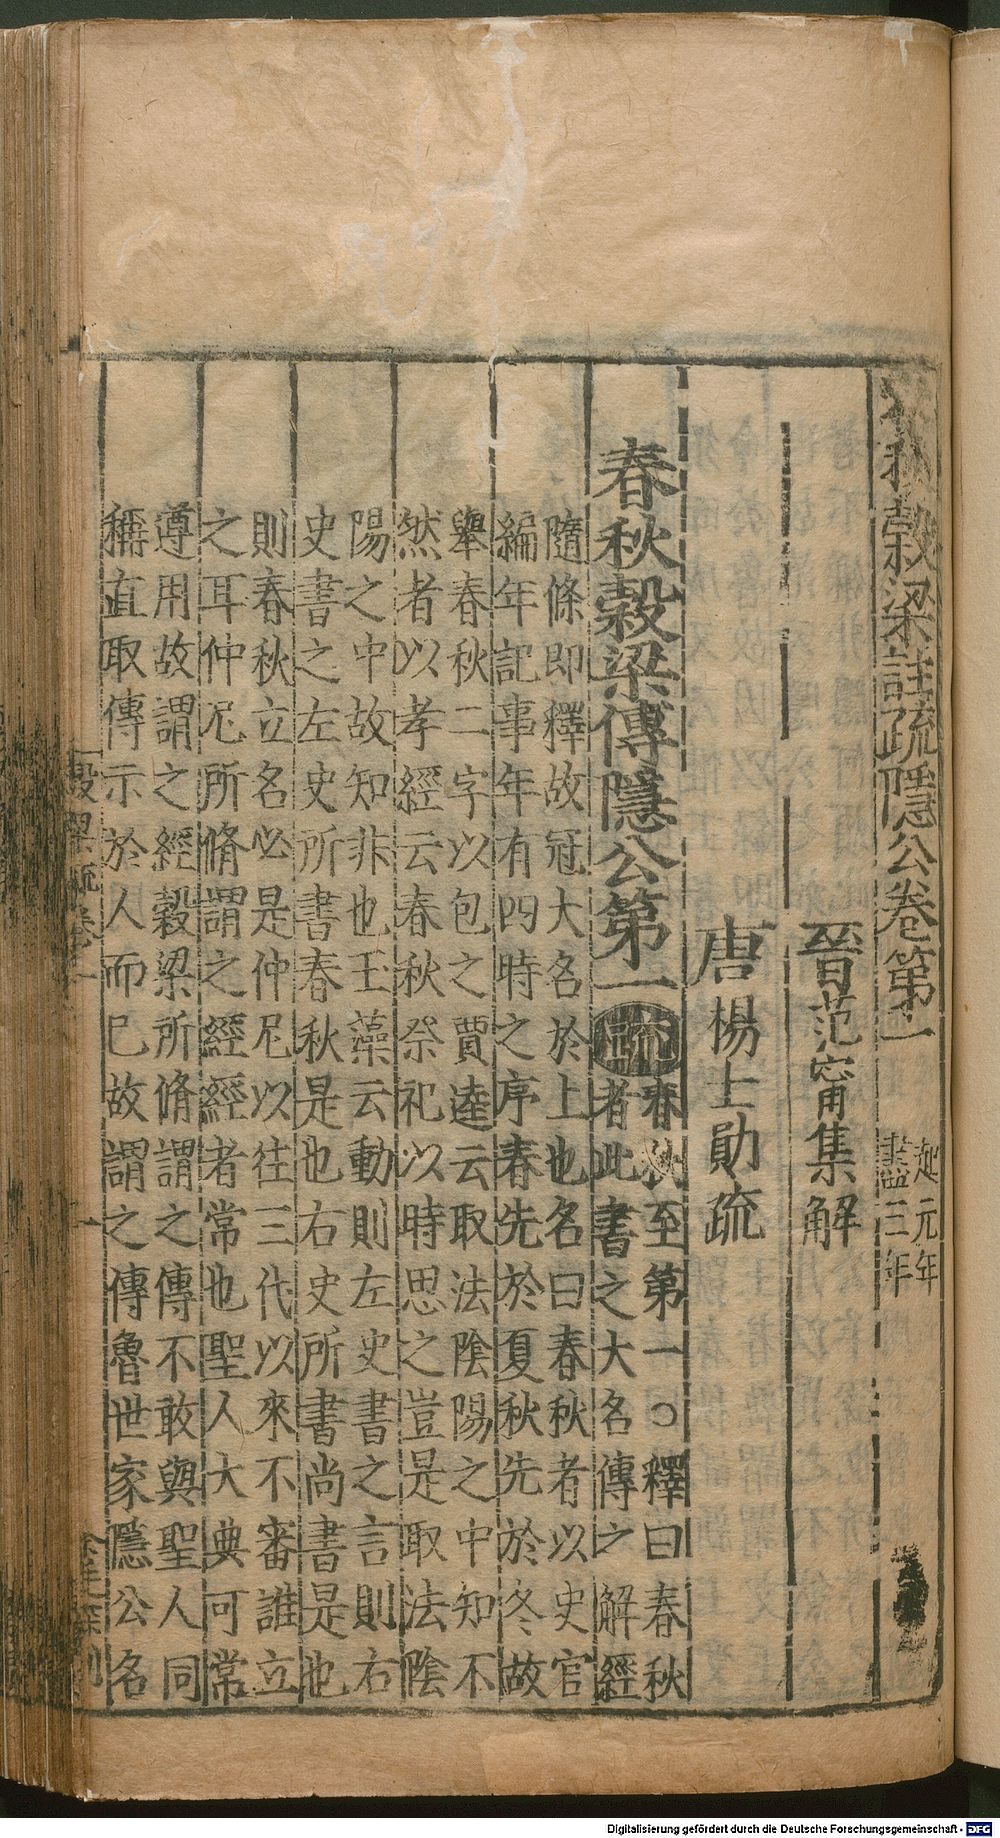 春秋穀梁註疏隱公卷第一 起元年
盡三年
晉范甯集解
唐楊士勛疏
春秋穀梁傳隱公第一疏 春秋至第一○釋曰春秋
者此書之大名傳之解經
隨條即釋故冠大名於上也名曰春秋者以史官
編年記事年有四時之序春先於夏秋先於冬故
舉春秋二字以包之賈逵云取法陰陽之中知不
然者以孝經云春秋祭祀以時思之豈是取法陰
陽之中故知非也玉藻云動則左史書之言則右
史書之左史所書春秋是也右史所書尚書是也
則春秋立名必是仲尼以往三代以來不審誰立
之耳仲尼所脩謂之經經者常也聖人大典可常
遵用故謂之經穀梁所脩謂之傳不敢與聖人同
稱直取傳示於人而已故謂之傳魯世家隱公名
穀梁疏卷一
一
Digitalisierung gefördert durch die Deutsche Forschungsgemeinschaft - DFG